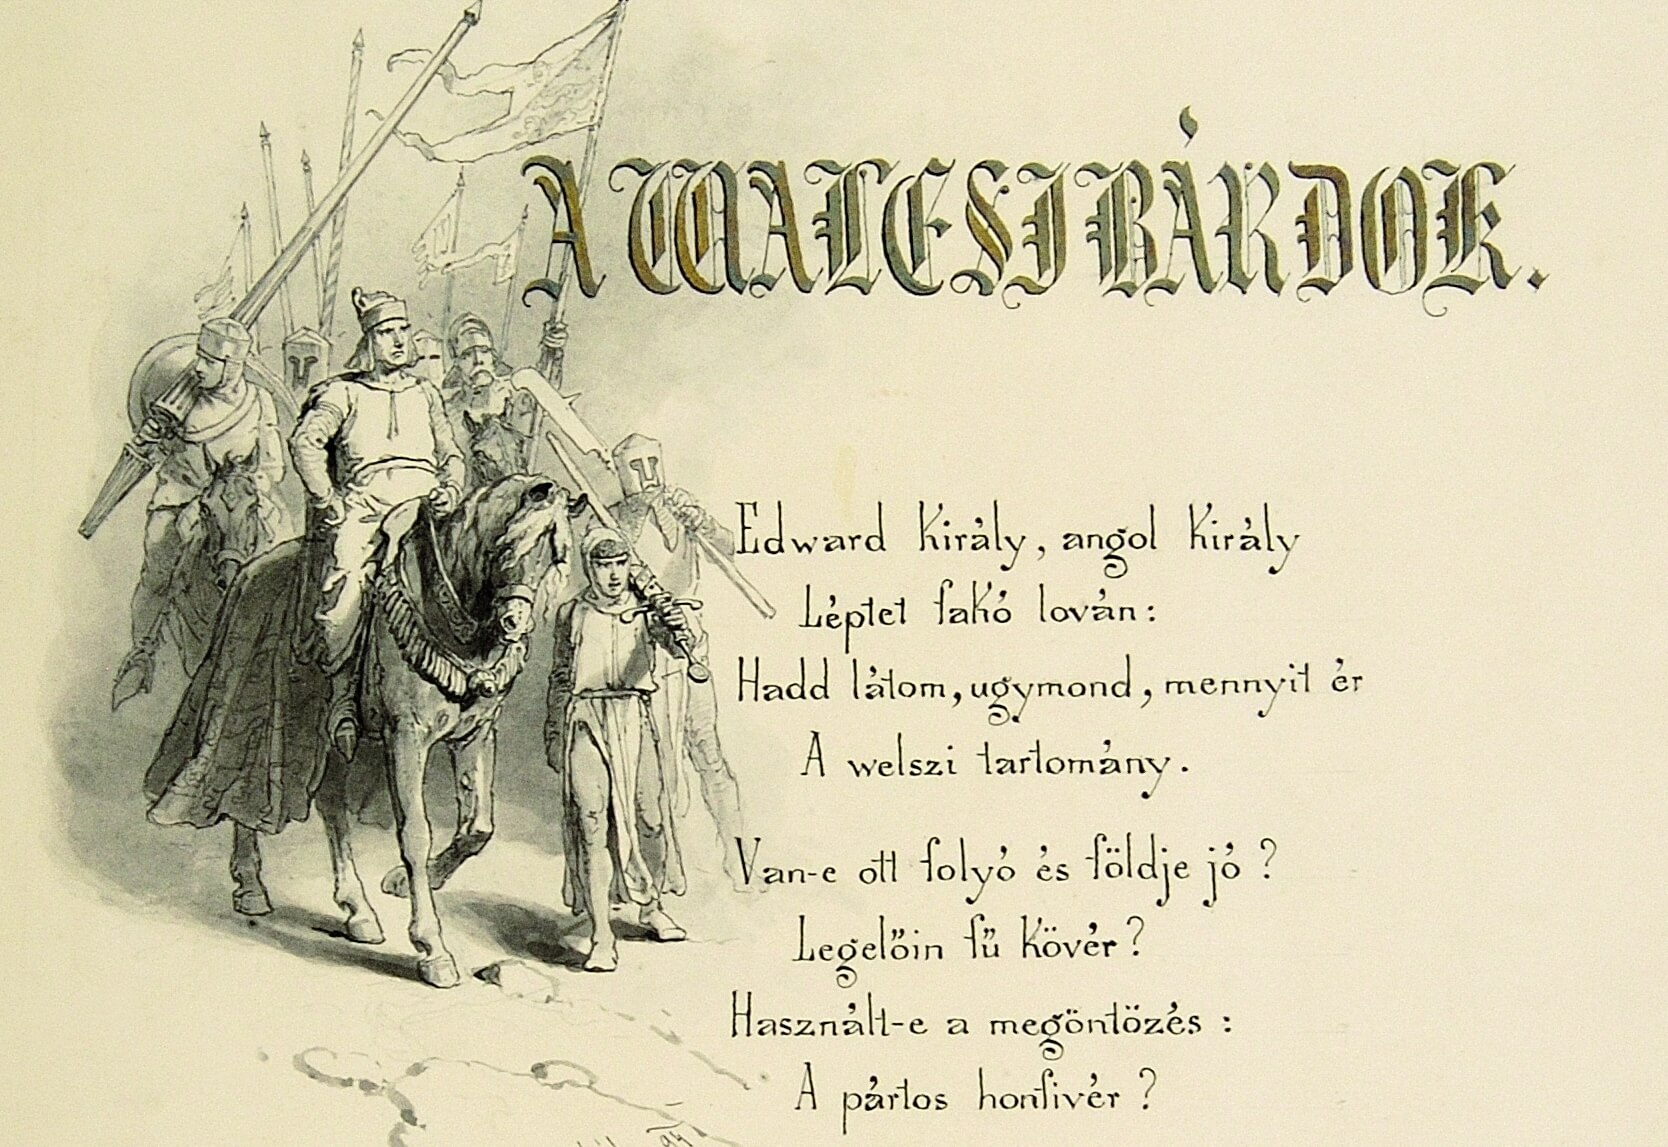 A WALESI BÁRDOK.
Edward Király, angol Király
Léptet fakó lován:
Hadd látom, ugymond, mennyit ér
A welszi tartomány.
Van-e ott folyó és földje jó?
Legelőin fű kövér?
Használt-e a megöntözés:
A pártos honfivér?